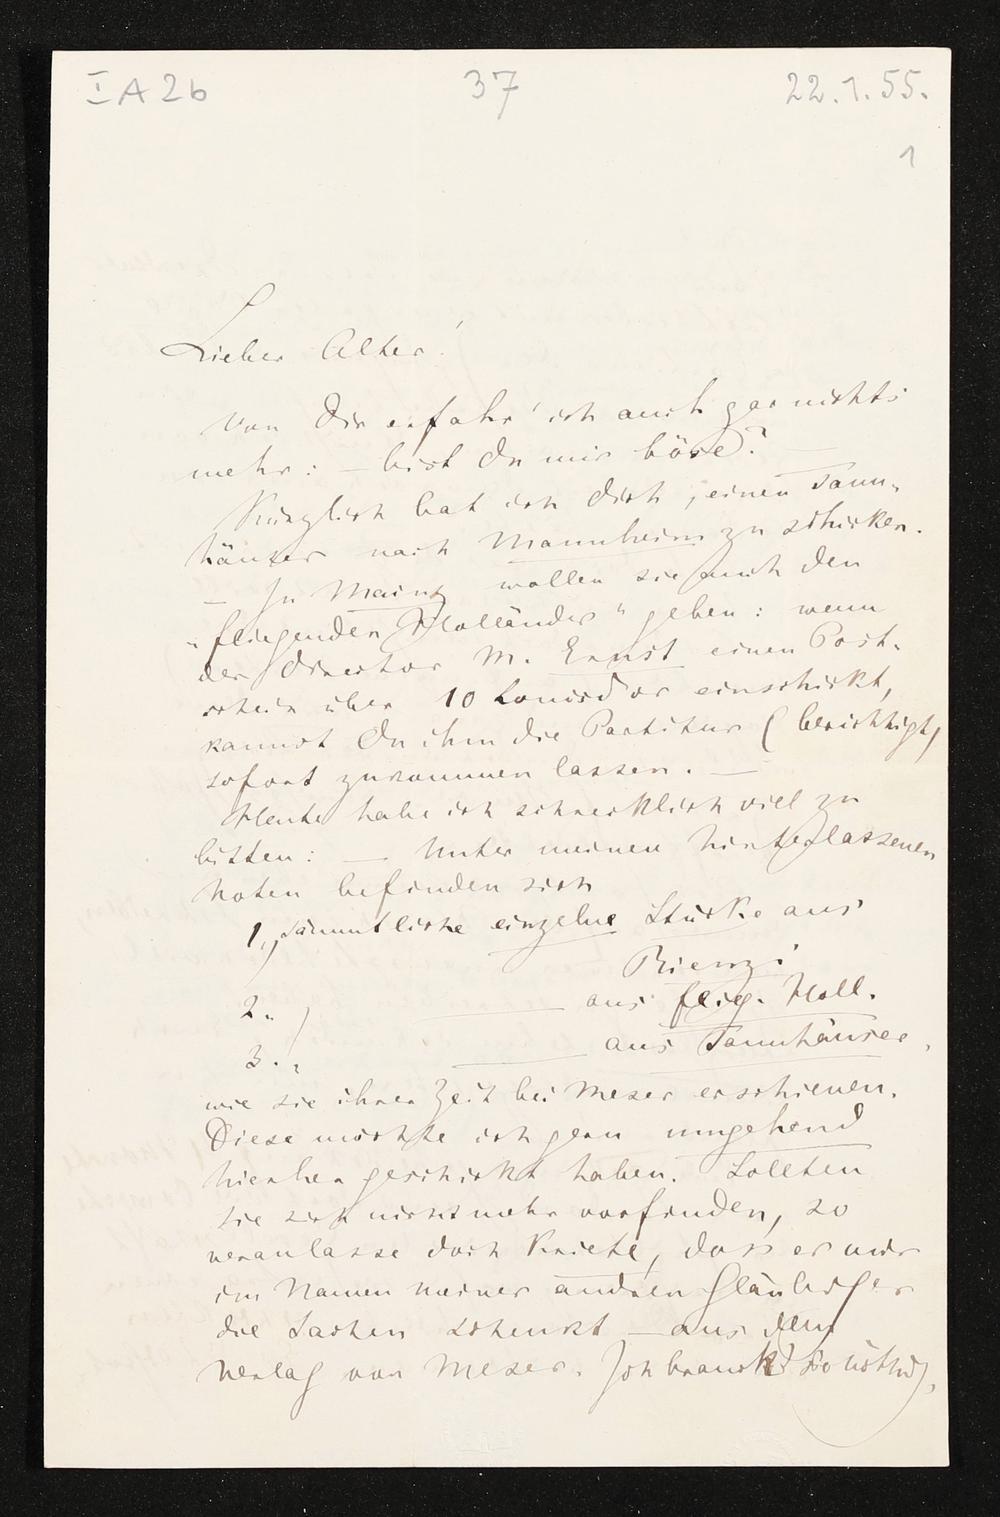 I A 2b 37 22.1.55.
1
Lieber Alter!
Von Dir erfahr' ich auch gar nichts
mehr: — bist Du mir böse? —
Kürzlich bat ich Dich, einen Tann-
häuser nach Mannheim zu schicken.
— In Mainz wollen sie auch den
„fliegenden Holländer“ geben: wenn
der Director M. Ernst einen Post-
schein über 10 Louisd'or einschickt,
kannst Du ihm die Partitur (berichtigt)
sofort zukommen lassen. —
Heute habe ich schrecklich viel zu
bitten: — Unter meinen hinterlassenen
Noten befinden sich
1., sämmtliche einzelne Stücke aus
Rienzi
2., — aus flieg. Holl.
3., — aus Tannhäuser,
wie sie ihrer Zeit bei Meser erschienen.
Diese möchte ich gern umgehend
hierher geschickt haben. Sollten
sie sich nicht mehr vorfinden, so
veranlasse doch Kriete, dass er mir
im Namen meiner andren Gläubiger
die Sachen schenkt — aus dem
Verlag von Meser. Ich brauch's so nöthig,